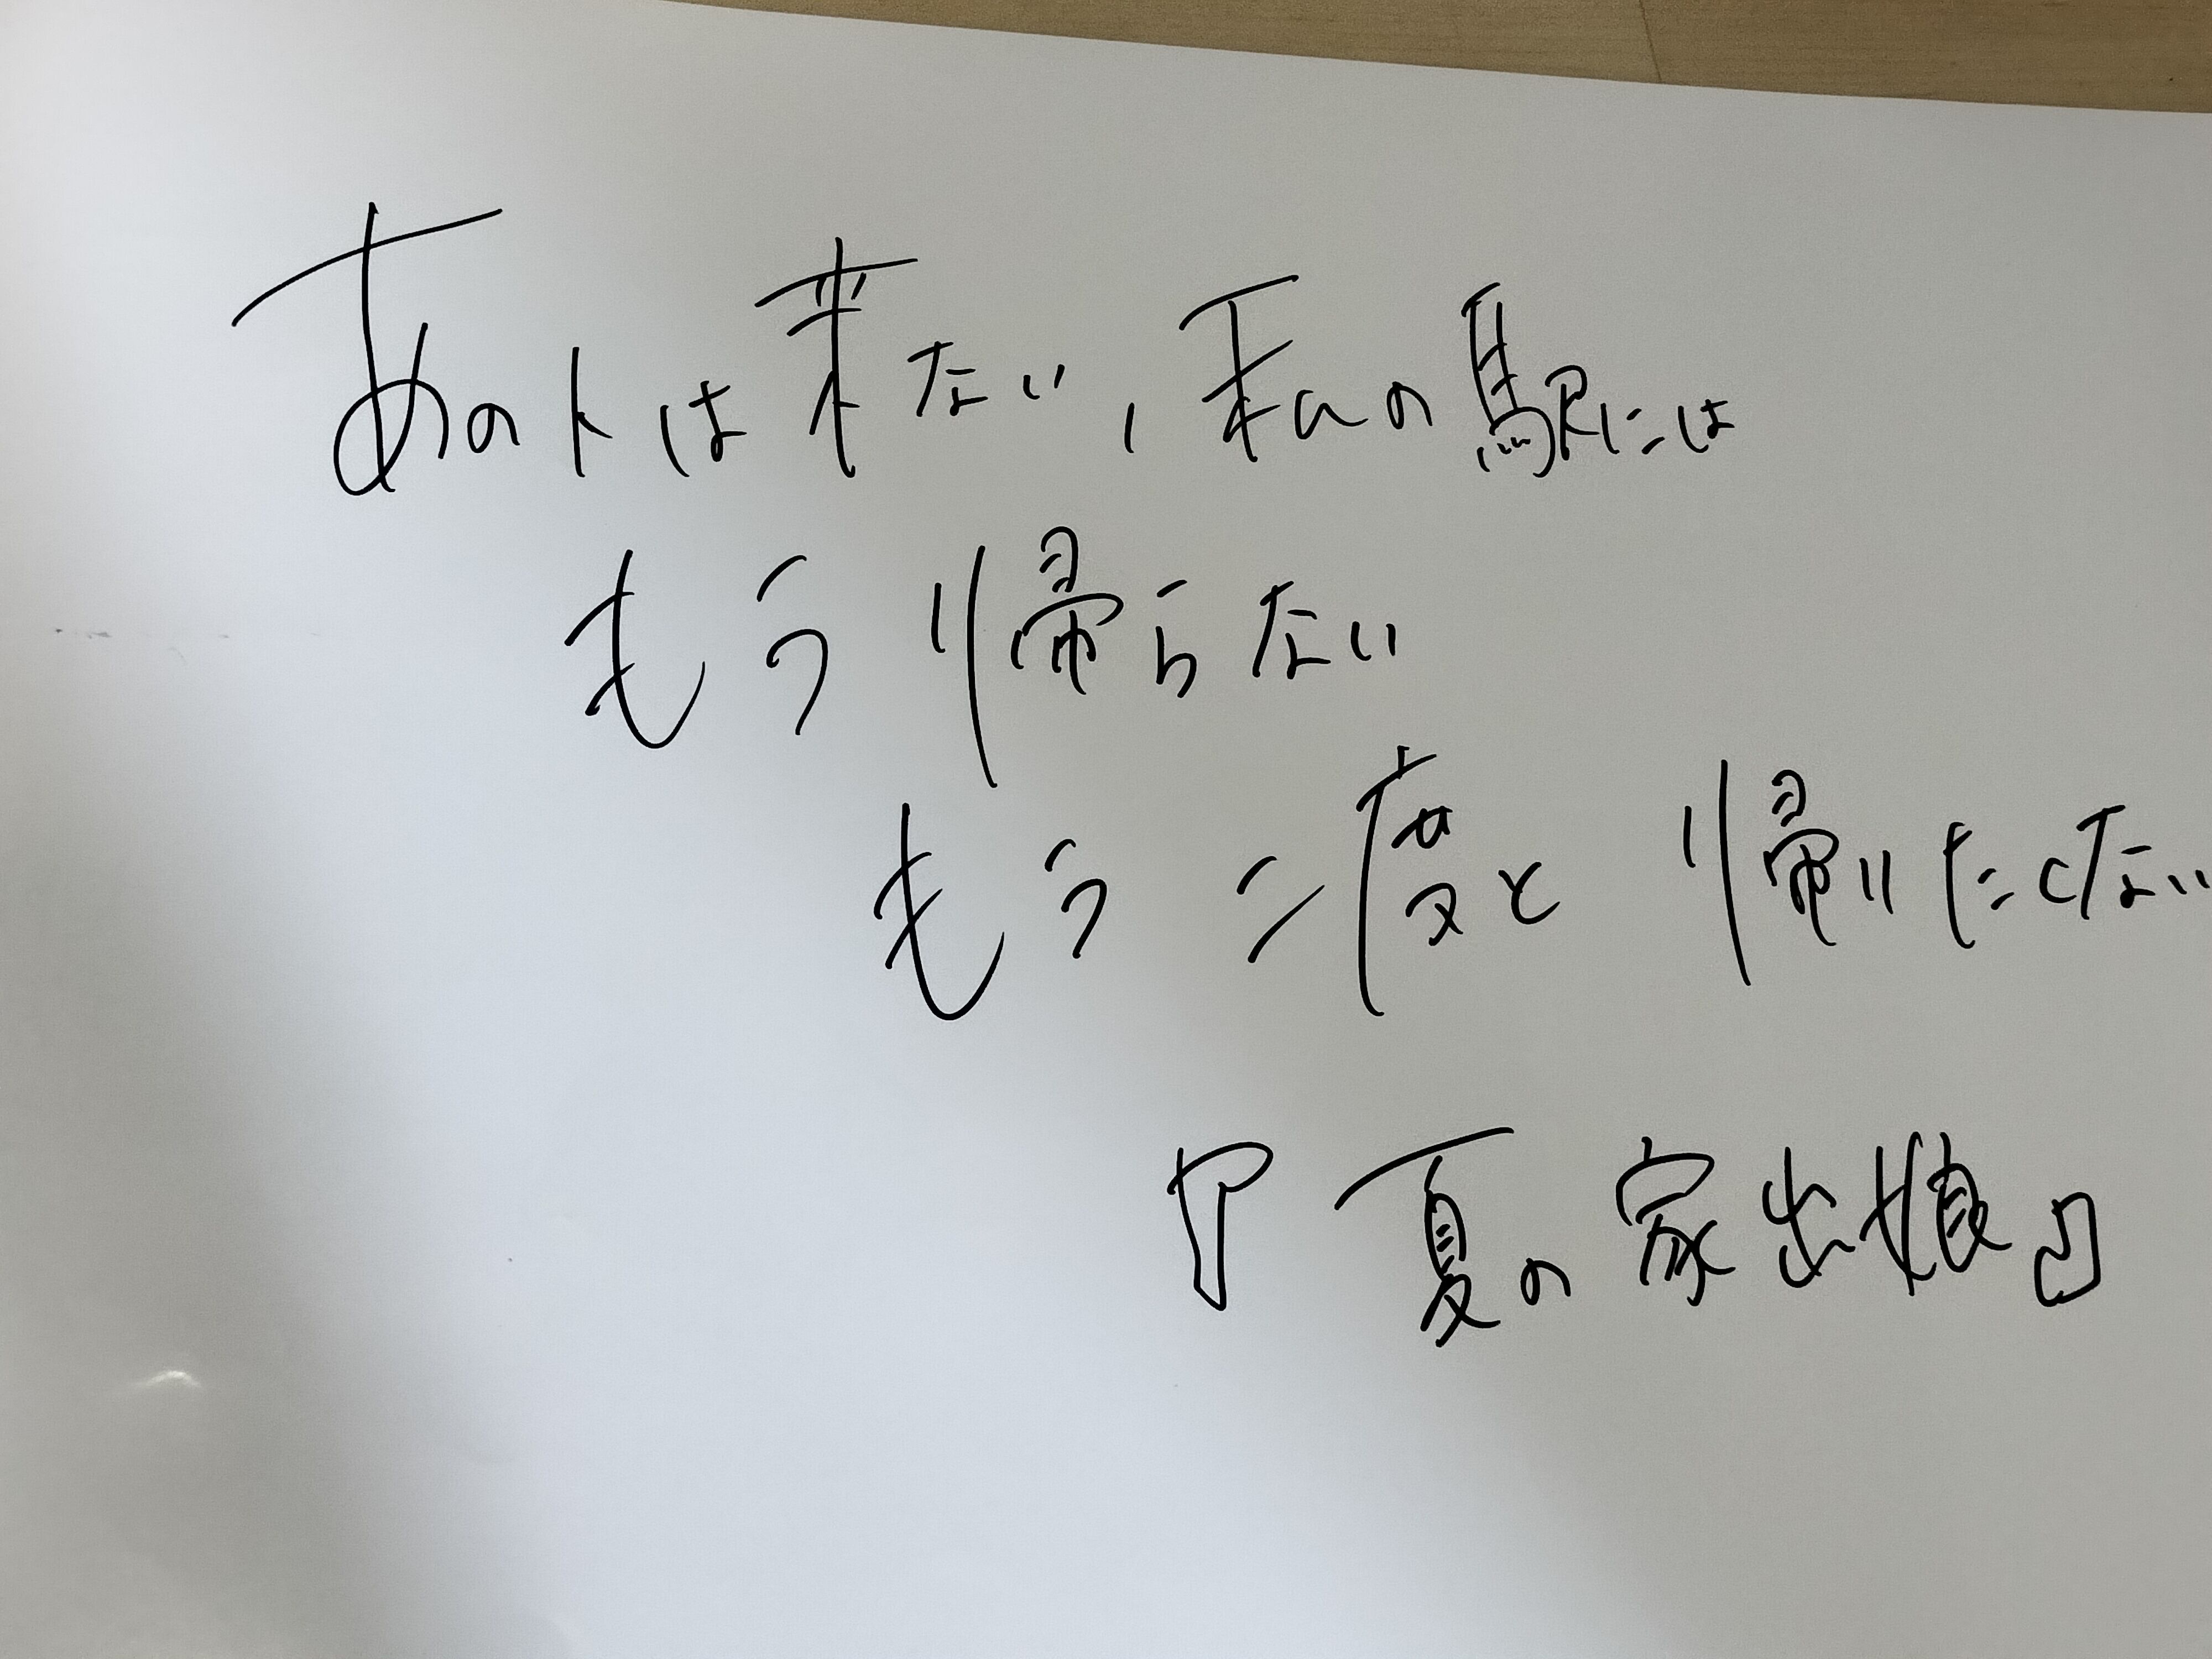 あの人は来ない、私の駅には
もう帰らない
もう二度と帰りたくない
『夏の家出娘』